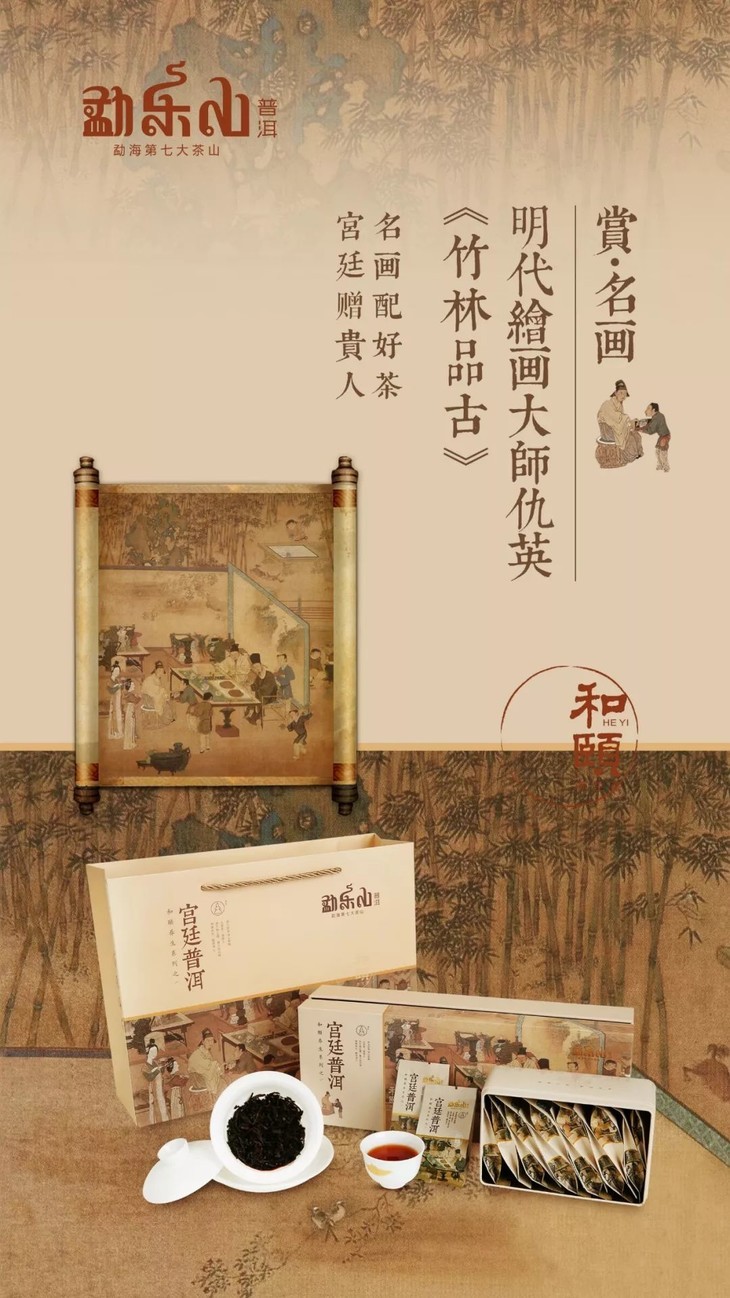 勐乐山
普洱
勐海第七大茶山
賞·名画
明代繪画大師仇英
《竹林品古》
名画配好茶
宮廷赠貴人
和頤
HE YI
勐乐山
普洱
勐海第七大茶山
宫廷普洱
和頤養生系列之一
宫廷普洱
和頤養生系列之一
宫廷普洱
宫廷普洱